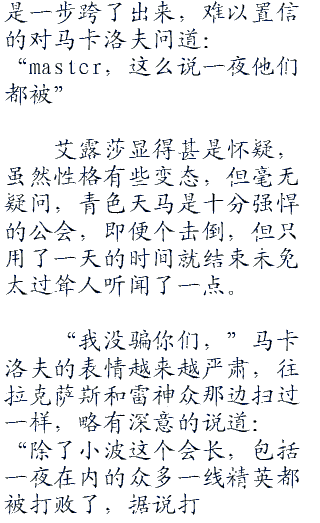 是一步跨了出来，难以置信
的对马卡洛夫问道：
“mastcr，这么说一夜他们
都被”
艾露莎显得甚是怀疑，
虽然性格有些变态，但毫无
疑问，青色天马是十分强悍
的公会，即便个击倒，但只
用了一天的时间就结束未免
太过耸人听闻了一点。
“我没骗你们，”马卡
洛夫的表情越来越严肃，往
拉克萨斯和雷神众那边扫过
一样，略有深意的说道：
“除了小波这个会长，包括
一夜在内的众多一线精英都
被打败了，据说打